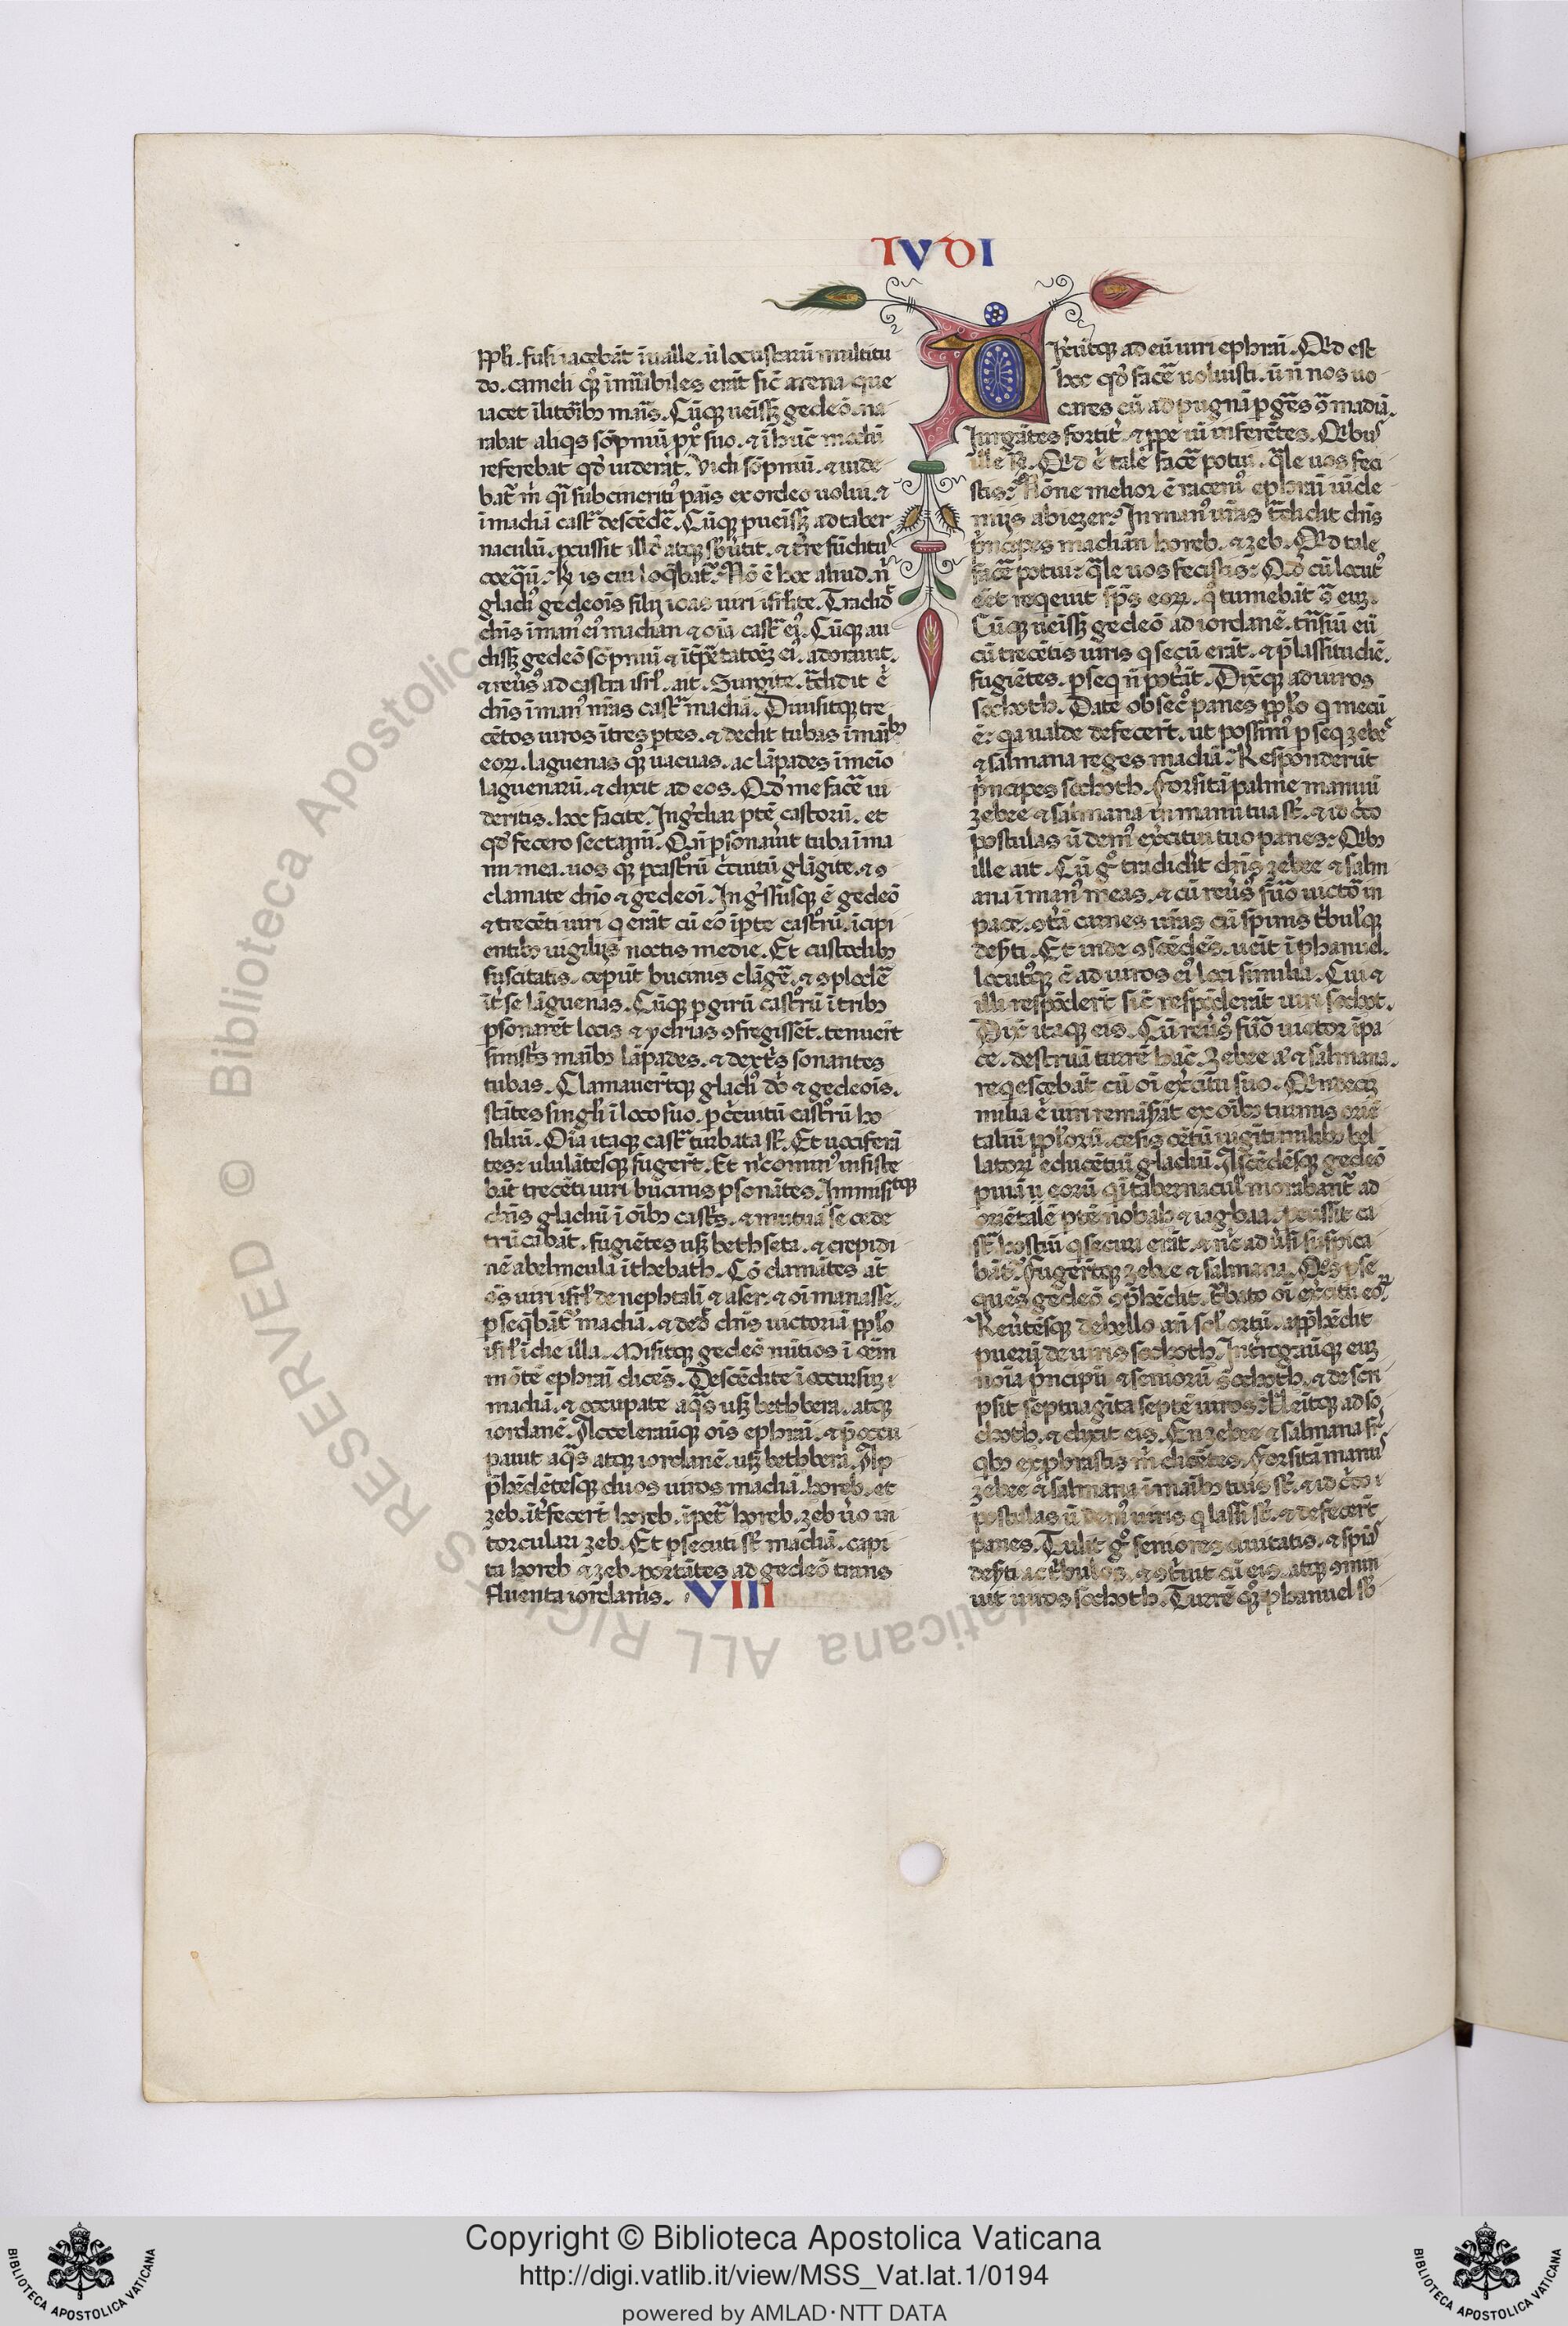 IVDI
ppl̄i. fusi iacebāt ī ualle. ū locustarū multitu
do. cameli qͦꝫ īnūabiles erāt sic̄ arena que
iacet ī litoribꝰ maris. Cūqꝫ ueniss̄ꝫ gedeō. na
rabat aliqͥs sōpniū pxͦ suo. ⁊ ī hūc modū
referebat qd̄ uiderat. Vidi sōpniū. ⁊ uide
bat᷑ m̄ qͣi subcineritiꝰ panis ex ordeo uolui. ⁊
ī madiā castͣ descēdē. Cūqꝫ p̱ueniss̄ꝫ ad taber
naculū. p̱cussit illd̄ atqꝫ sb̄uertit. ⁊ tr̄re fūditꝰ
coeqͣuit. Rn̄ is cui loq̄bat᷑. Nō ē hoc aliud. nͥ
gladiꝰ gedeonis filij ioas uiri isrl̄ite. Tradidͭ
dn̄s ī manꝰ eiꝰ madian ⁊ oīa castͣ eiꝰ. Cūqꝫ au
diss̄ꝫ gedeō sōpniū ⁊ īt̄p̄tatōeꝫ eiꝰ. adorauit.
⁊ reūsꝰ ad castra isrl̄. ait. Surgite. tͣdidit .n̄.
dn̄s ī manꝰ nr̄as castͣ madiā. Diuisitqꝫ tre
cētos uiros ī tres p̱tes. ⁊ dedit tubas ī manibꝰ
eoꝝ. laguenas qͦꝫ uacuas. ac lāpades ī meīo
laguenarū. ⁊ dixit ad eos. Qd̄ me facē ui
deritis. hoc facite. Ingͥdiar p̱tē castrorū. et
qd̄ fecero sectamī. Qn̄ p̱sonauīt tuba ī ma
nu mea. uos qͦꝫ p̱ castrorū cͥcuitū glāgite. ⁊ ꝯ
clamate dn̄o ⁊ gedeoni. Ingͥssusqꝫ ē gedeō
⁊ trecēti uiri q̄ erāt cū eō ī p̱te castrorū. īcipi
entibꝰ uigilijs noctis medie. Et custodibꝰ
suscitatis. cep̱ut bucinis clāgē. ⁊ ꝯplodē
īt̄ se lāguenas. Cūqꝫ p̱ girū castrorū ī tribꝰ
p̱sonarēt locis ⁊ ydrias ꝯfregissēt. tenuerīt
sinistͥs manibꝰ lāpades. ⁊ dextͥs sonantes
tubas. Clamauerītqꝫ gladiꝰ dn̄i ⁊ gedeonis.
stātes singl̄i ī loco suo. p̱ cͥcuitū castrorū ho
stiliū. Oīa itaqꝫ castͣ turbata sūt. Et uociferā
tes: ululātesqꝫ fugerūt. Et n̄icominꝰ insiste
bāt trecēti uiri bucinis p̱sonātes. Immisitqꝫ
dn̄s gladiū ī oībꝰ castͥs. ⁊ mutua se cede
trūcabāt. fugiētes usqꝫ bethseta. ⁊ crepidi
nē abelmeula ī thebath. Cō clamātes at̄
ōs uiri isrl̄ de nephtali ⁊ aser. ⁊ oī manasse.
p̱seq̄bāt᷑ madiā. ⁊ dedͭ dn̄s uictoriā ppl̄o
isrl̄ ī die illa. Misitqꝫ gedeō nūtios ī oēm
mōtē ephraī dicēs. Descēdite ī occursuꝫ
madiā. ⁊ occupate aqͣs usqꝫ bethbera. atqꝫ
iordanē. Accelerauitqꝫ oīs ephraī. ⁊ p̄occu
pauit aqͣs atqꝫ iordanē. usqꝫ bethbera. Ap
p̄hēdētesqꝫ duos uiros madiā. horeb. et
zeb. īt̄fecerūt horeb. ī petͣ horeb. zeb ūo in
torculari zeb. Et p̱secuti sūt madiā. capi
ta horeb ⁊ zeb. portātes ad gedeō trans
fluenta iordanis. VIII
Dixerūtqꝫ ad eū uiri ephraī. Qd̄ est
hoc qd̄ facē uoluisti. ū n̄ nos uo
cares cū ad pugnā p̱gēs ꝯͣ madiā.
Iurgātes fortit̄. ⁊ p̱pe uī inferētes. Qibꝰ
ille rn̄. Qd̄ .n̄. talē facē potui. qͣle uos feci
stis: Nōne melior ē racemꝰ ephraī uīde
mijs abiezer: In manꝰ uras tͣdidit dn̄s
pͥncipes madian horeb. ⁊ zeb. Qd̄ tale
facē potui: qͣle uos fecistis: Qd̄ cū locutꝰ
eēt reqeuit sp̄s eoꝝ. qͦ tumebāt ꝯͣ euꝫ.
Cūqꝫ uenissꝫ gedeō ad iordanē. tn̄siuit eū
cū trecētis uiris q̄ secū erāt. ⁊ p̄ lassitudiē.
fugiētes. p̱seq̄ n̄ potͣt. Dixitqꝫ ad uiros
sochoth. Date obsecͦ panes ppl̄o q̄ mecū
ē: qͣ ualde defecerūt. ut possimꝰ p̱seq̄ zebeͤ
⁊ salmana reges madiā. Responderūt
pͥncipes sochoth. Forsitā palme manuū
zebee ⁊ salmana in manu tua sūt. ⁊ idcͥco
postulas ū demꝰ exͥcitui tuo panes: Qibꝰ
ille ait. Cū gͦ tradidͥt dn̄s zebee ⁊ salm
ana ī manꝰ meas. ⁊ cū reūsꝰ fuo uictor in
pace. ꝯtͣā carnes uras cū spinis tͥbul'qꝫ
deserti. Et inde ꝯscēdēs. uēit ī phanuel.
locutꝰqꝫ ē ad uiros eiꝰ loci similia. Cui ⁊
illi respōderūt sic̄ respōderāt uiri sochot.
Dixͭ itaqꝫ eis. Cū reūsꝰ fuo uictor ī pa
ce. destruā turrē hāc. Zebee at̄ ⁊ salmana.
reqescebāt cū oī exͥcitu suo. Qindeci
milia .n̄. uiri remāserāt ex oībꝰ turmis oriē
taliū ppl̄orū. cesis cētū uigiti milibꝰ bel
latorū educētiū gladiū. Ascēdēsqꝫ gedeō
p̱ uiā eorū qͥ ī tabernacul' morabant᷑ ad
oriētalē p̱tē nobah ⁊ iagbaa. p̱cussit ca
stͣ hostiū q̄ securi erāt. ⁊ nͥc̄ aduͥsi suspica
bāt᷑. Fugerūtqꝫ zebee ⁊ salmana. Qos p̱se
quēs gedeō ꝯp̄hēdit. tͥbato oī exͥcitu eoꝝ.
Reūtēsqꝫ de bello an̄ sol' ortū. app̄hēdit
puerū de uiris sochoth. Int̄rogauitqꝫ euꝫ
noīa pͥncipū ⁊ seniorū sochoth. ⁊ descri
psit septuagīta septē uiros. Uēitqꝫ ad so
choth. ⁊ dixit eis. En zebee ⁊ salmana sꝑ
qͥbꝰ exp̱brastis m̄ dicētes. Forsitā manꝰ
zebee ⁊ salmana ī manibꝰ tuis sūt. ⁊ idcͥco
postulas ū demꝰ uiris q̄ lassi sūt. ⁊ defecerūt
panes. Tulit gͦ seniores ciuitatis. ⁊ spinͣ
deserti ac tͥbulos. ⁊ ꝯtͥuit cū eis. atqꝫ ꝯmin
uit uiros sochoth. Turrē qͦꝫ phanuel sb̄
© Biblioteca Apostolica Vaticana ALL RIGHTS RESERVED
Copyright © Biblioteca Apostolica Vaticana
http://digi.vatlib.it/view/MSS_Vat.lat.1/0194
powered by AMLAD·NTT DATA
BIBLIOTECA APOSTOLICA VATICANA
BIBLIOTECA APOSTOLICA VATICANA